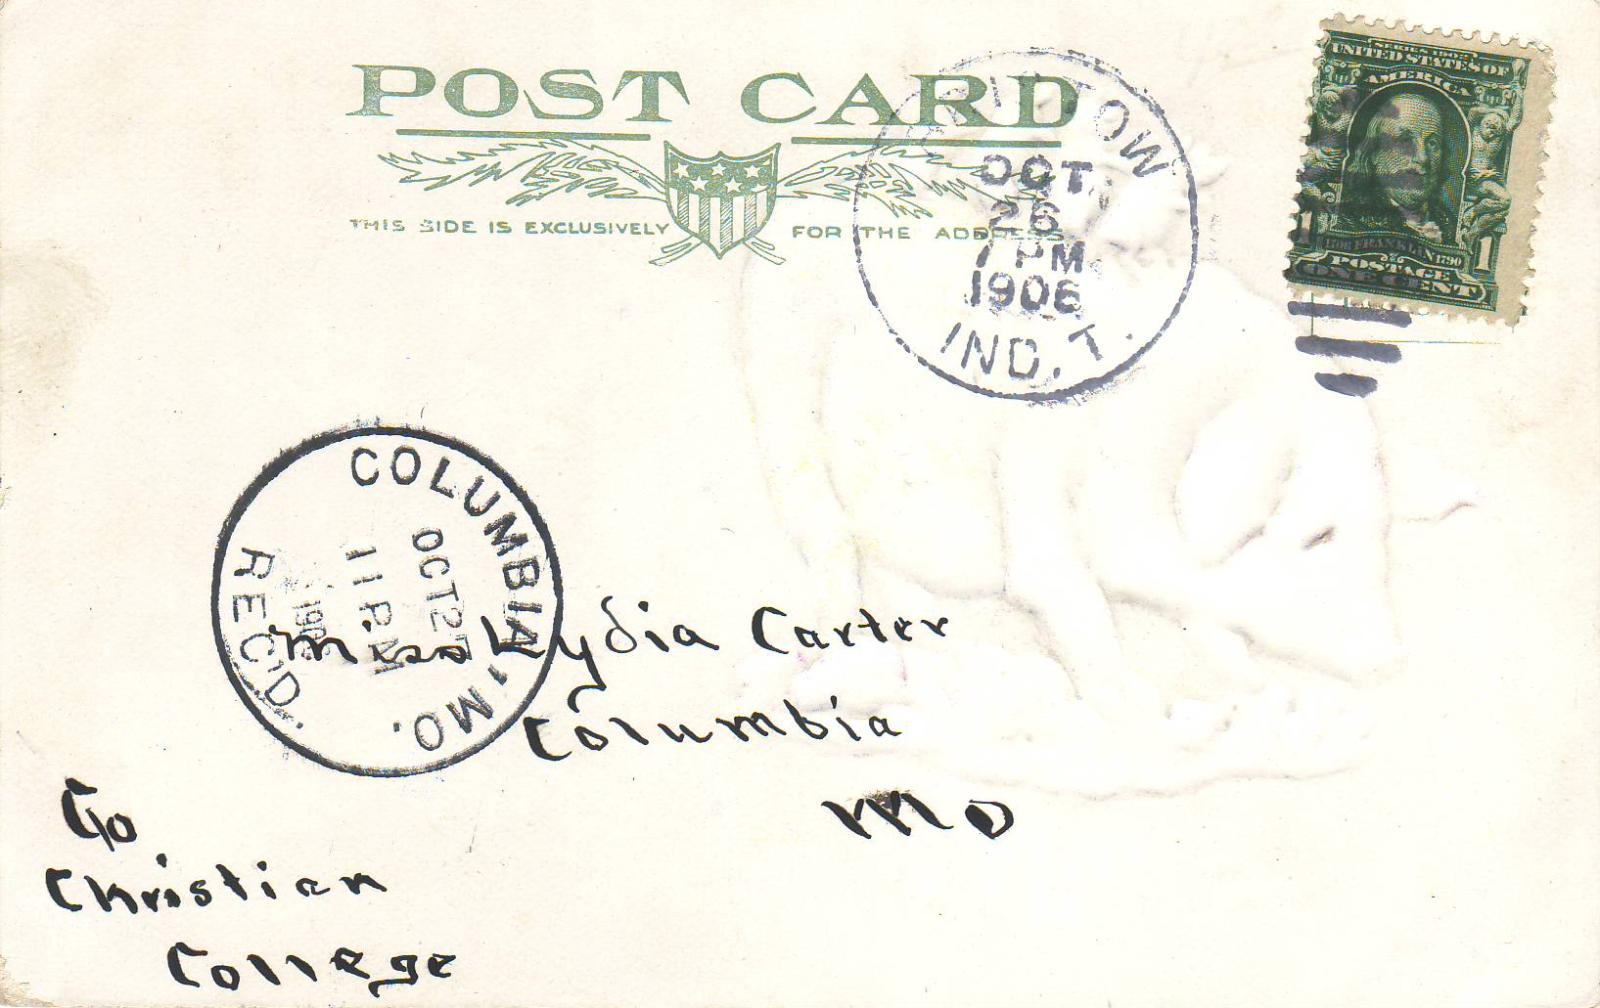 POST CARD
THIS SIDE IS EXCLUSIVELY FOR THE ADDRESS
OCT
26
7 PM
1906
IND. T.
SERIES 1902
UNITED STATES OF
AMERICA
1706 FRANKLIN 1790
1 POSTAGE 1
ONE CENT
COLUMBIA, MO.
OCT 27
11 PM
REC'D.
Miss Lydia Carter
Columbia
Mo
C/o
Christian
College